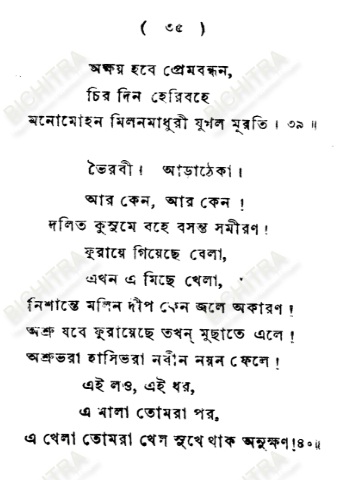 ( ৩৫ )
অক্ষয় হবে প্রেমবন্ধন,
চির দিন হেরিবহে
মনোমোহন মিলনমাধুরী যুগল মূরতি । ৩৯ ॥
ভৈরবী । আড়াঠেকা ।
আর কেন, আর কেন !
দলিত কুসুমে বহে বসন্ত সমীরণ !
ফুরায়ে গিয়েছে বেলা,
এখন এ মিছে খেলা,
নিশান্তে মলিন দীপ কেন জলে অকারণ !
অশ্রু যবে ফুরায়েছে তখন্ মুছাতে এলে !
অশ্রুভরা হাসিভরা নবীন নয়ন ফেলে !
এই লও, এই ধর,
এ মালা তোমরা পর,
এ খেলা তোমরা খেল সুখে থাক অনুক্ষণ !৪০॥
BICHITRA
BICHITRA
BICHITRA
BICHITRA
BICHITRA